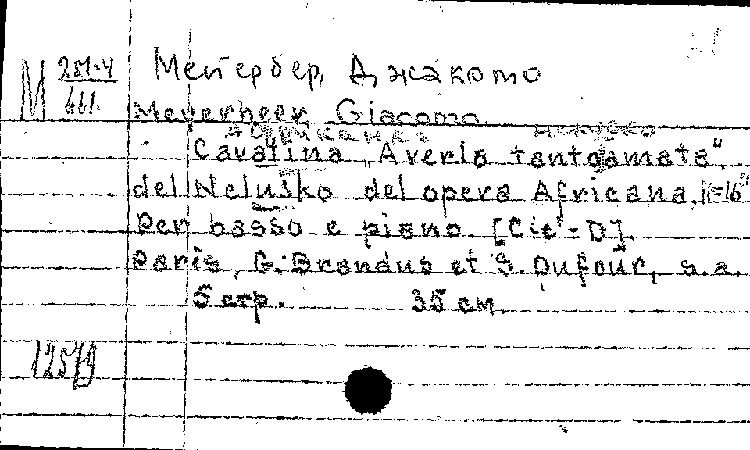 М 251-4 Мейербер, Джакомо
661. Meyerbeer Giacomo
Африканка Нелюско
Cavatina „Averla tantoamata"
del Nelusko del opera Africana. №16
Per basso e piano. [Cis'-D].
Paris, G. Brandus et S. Dufour, s.a.
5 стр. 35 см.
12579